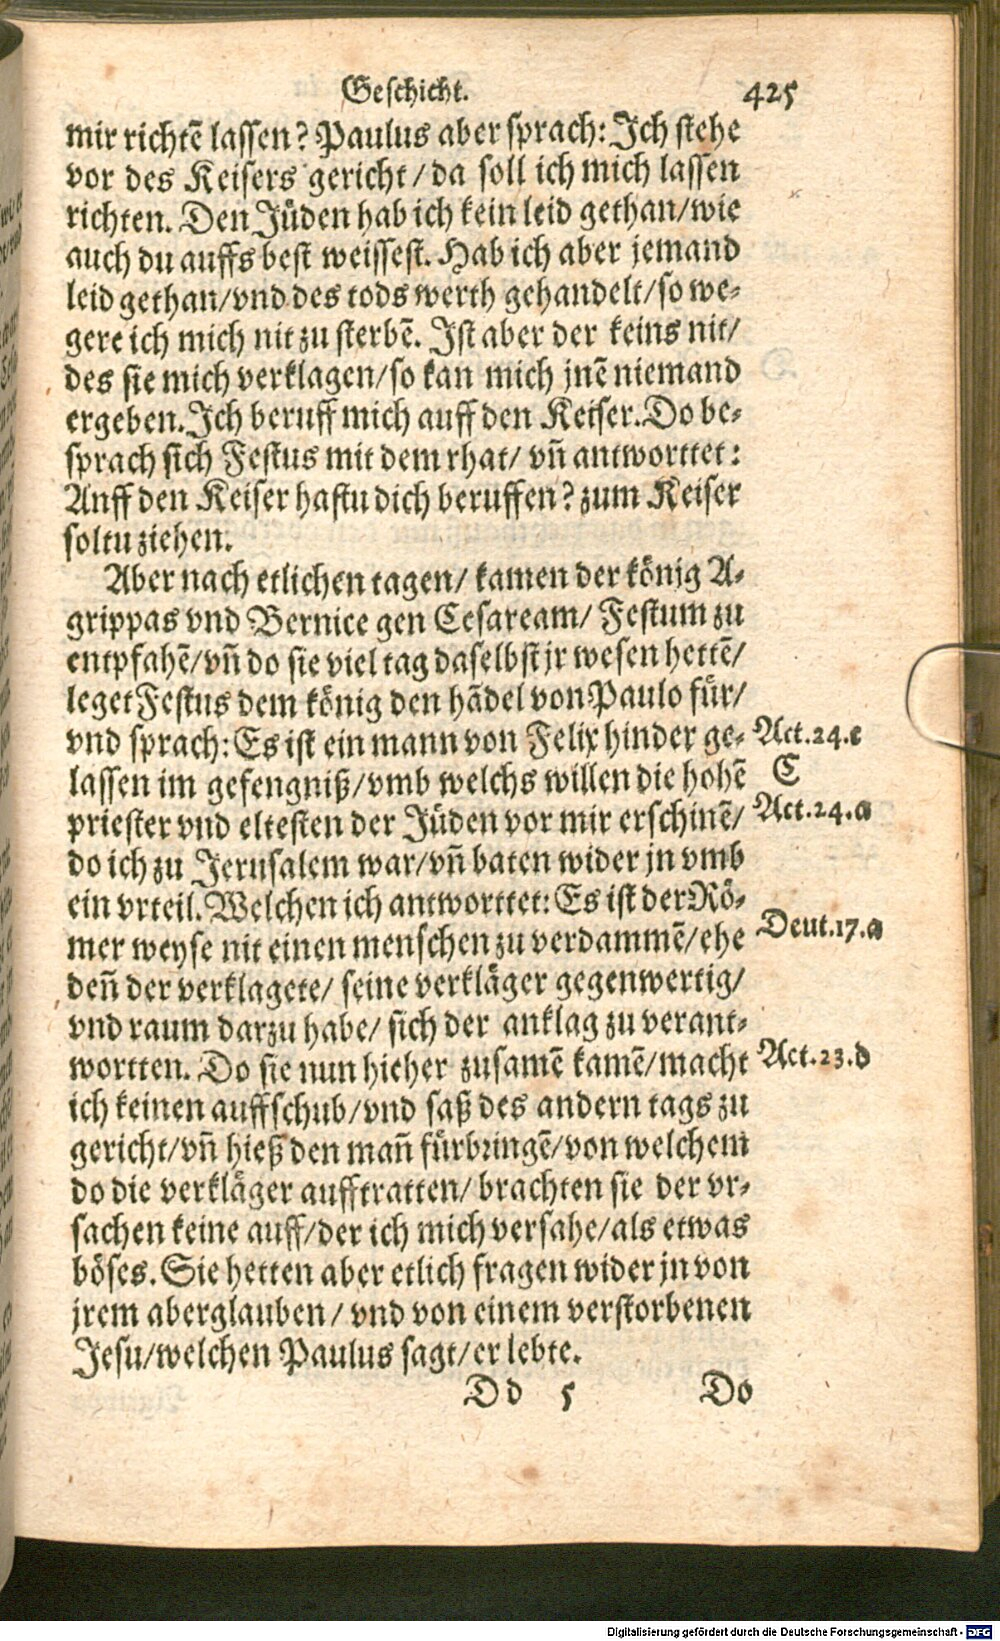 Geschicht. 425
mir richtẽ lassen? Paulus aber sprach: Ich stehe
vor des Keisers gericht/ da soll ich mich lassen
richten. Den Jüden hab ich kein leid gethan/ wie
auch du auffs best weissest. Hab ich aber jemand
leid gethan/ vnd des tods werth gehandelt/ so we-
gere ich mich nit zu sterbẽ. Ist aber der keins nit/
des sie mich verklagen/ so kan mich jnẽ niemand
ergeben. Ich beruff mich auff den Keiser. Do be-
sprach sich Festus mit dem rhat/ vñ antworttet:
Anff den Keiser hastu dich beruffen? zum Keiser
soltu ziehen.
Aber nach etlichen tagen/ kamen der könig A-
grippas vnd Bernice gen Cesaream/ Festum zu
entpfahẽ/ vñ do sie viel tag daselbst jr wesen hettẽ/
leget Festus dem könig den hãdel von Paulo für/
vnd sprach: Es ist ein mann von Felix hinder ge- Act.24.e
lassen im gefengniß/ vmb welchs willen die hohẽ C
priester vnd eltesten der Jüden vor mir erschinẽ/ Act.24.a
do ich zu Jerusalem war/ vñ baten wider jn vmb
ein vrteil. Welchen ich antworttet: Es ist der Rö-
mer weyse nit einen menschen zu verdammẽ/ ehe Deut.17.a
deñ der verklagete/ seine verkläger gegenwertig/
vnd raum darzu habe/ sich der anklag zu verant-
wortten. Do sie nun hieher zusamẽ kamẽ/ macht Act.23.d
ich keinen auffschub/ vnd saß des andern tags zu
gericht/ vñ hieß den mañ fürbringẽ/ von welchem
do die verkläger aufftratten/ brachten sie der vr-
sachen keine auff/ der ich mich versahe/ als etwas
böses. Sie hetten aber etlich fragen wider jn von
jrem aberglauben/ vnd von einem verstorbenen
Jesu/ welchen Paulus sagt/ er lebte.
Dd 5 Do
Digitalisierung gefördert durch die Deutsche Forschungsgemeinschaft - DFG